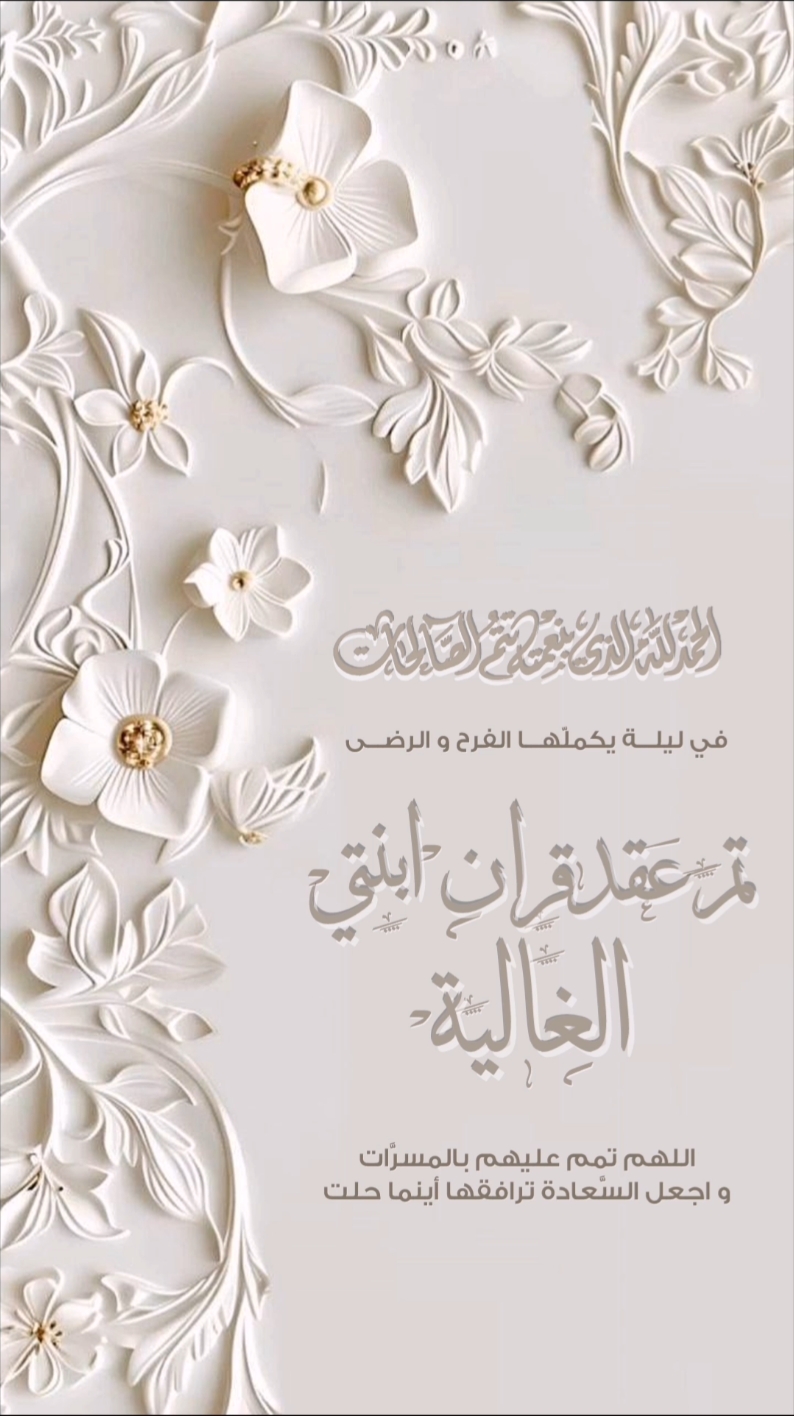 الحمدلله الذي بنعمته تتم الصالحات
في ليلـــة يكملّهـــا الفرح و الرضـــى
تم عقد قران ابنتي
الغالية
اللهم تمم عليهم بالمسرَّات
و اجعل السَّعادة ترافقها أينما حلت